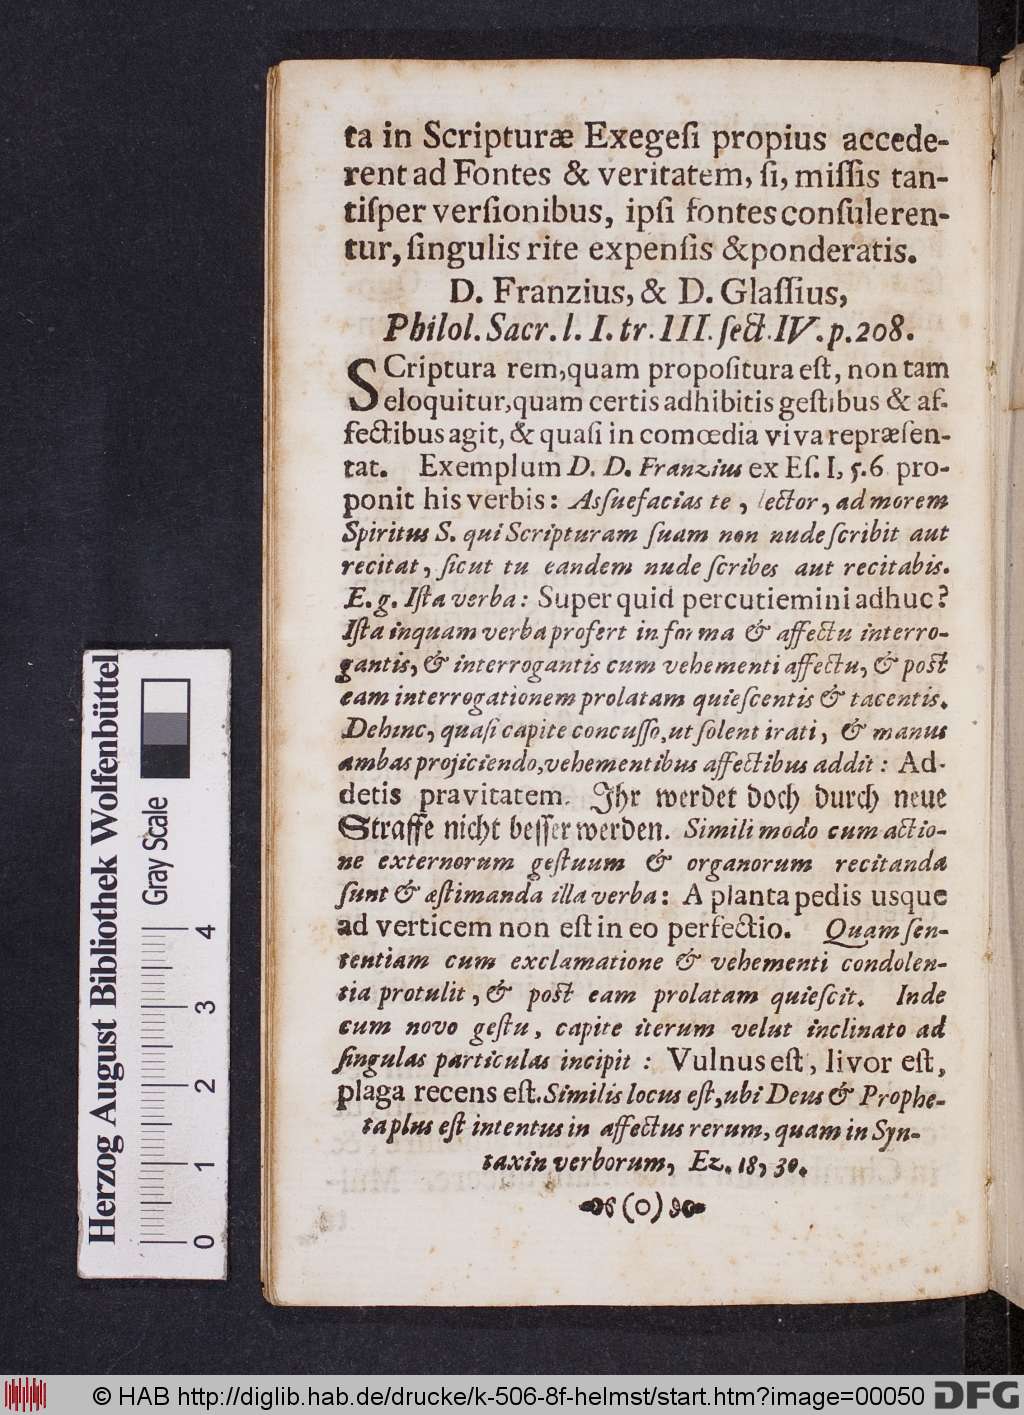 ta in Scripturæ Exegeſi propius accede-
rent ad Fontes & veritatem, ſi, miſſis tan-
tiſper verſionibus, ipſi fontes conſuleren-
tur, ſingulis rite expenſis & ponderatis.
D. Franzius, & D. Glaſſius,
Philol. Sacr. l. I. tr. III. ſect. IV. p. 208.
SCriptura rem, quam propoſitura eſt, non tam
eloquitur, quam certis adhibitis geſtibus & af-
fectibus agit, & quaſi in comœdia viva repræſen-
tat. Exemplum D. D. Franzius ex Eſ. I, 5. 6 pro-
ponit his verbis: Asſuefacias te, lector, ad morem
Spiritus S. qui Scripturam ſuam non nude ſcribit aut
recitat, ſicut tu eandem nude ſcribes aut recitabis.
E. g. Iſta verba: Super quid percutiemini adhuc?
Iſta inquam verba profert in forma & affectu interro-
gantis, & interrogantis cum vehementi affectu, & poſt
eam interrogationem prolatam quieſcentis & tacentis.
Dehinc, quaſi capite concuſſo, ut ſolent irati, & manus
ambas projiciendo, vehementibus affectibus addit: Ad-
detis pravitatem. Ihr werdet doch durch neue
Straffe nicht beſſer werden. Simili modo cum actio-
ne externorum geſtuum & organorum recitanda
ſunt & æſtimanda illa verba: A planta pedis usque
ad verticem non eſt in eo perfectio. Quam ſen-
tentiam cum exclamatione & vehementi condolen-
tia protulit, & poſt eam prolatam quieſcit. Inde
cum novo geſtu, capite iterum velut inclinato ad
ſingulas particulas incipit: Vulnus eſt, livor eſt,
plaga recens eſt. Similis locus eſt, ubi Deus & Prophe-
ta plus eſt intentus in affectus rerum, quam in Syn-
taxin verborum, Ez. 18, 30.
(o)
Herzog August Bibliothek Wolfenbüttel
Gray Scale
0 1 2 3 4
© HAB http://diglib.hab.de/drucke/k-506-8f-helmst/start.htm?image=00050
DFG